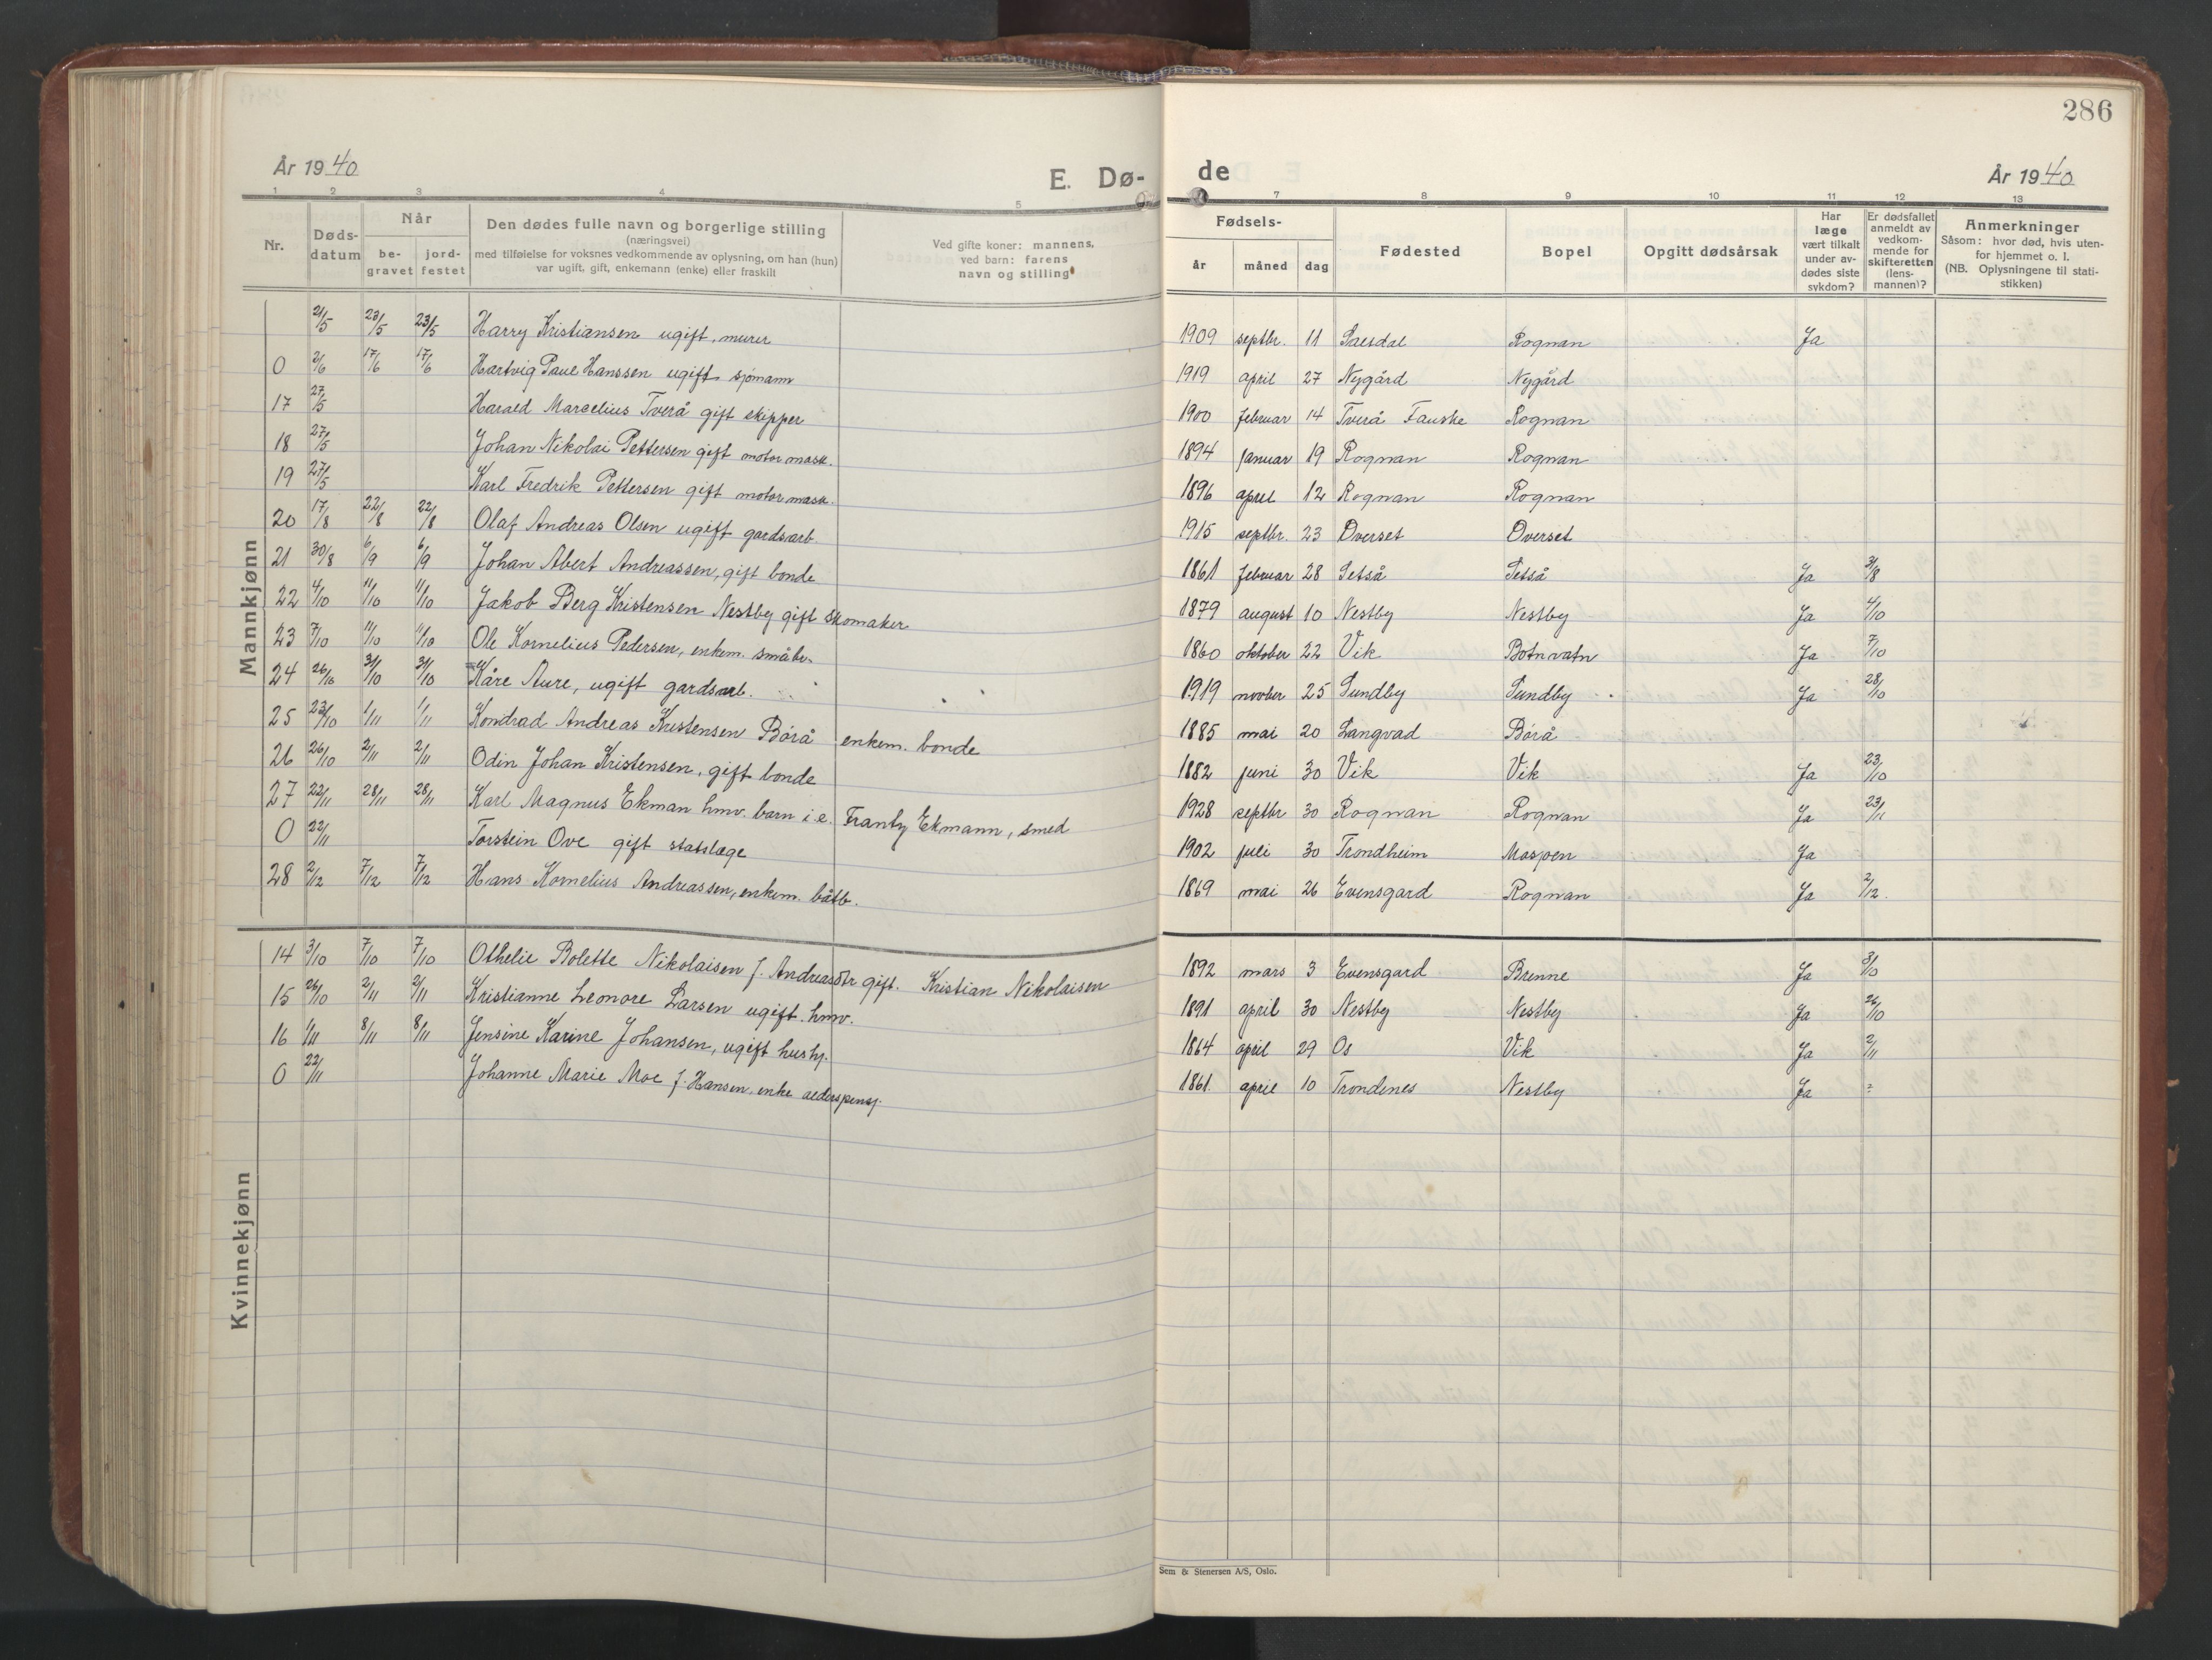 286
År 1940
E. Dø-
de
År 1940
1 2 3 4 5
7 8 9 10 11 12 13
Nr.
Døds-
datum
Når
be-
gravet
jord-
festet
Den dødes fulle navn og borgerlige stilling
(næringsvei)
med tilføielse for voksnes vedkommende av oplysning, om han (hun)
var ugift, gift, enkemann (enke) eller fraskilt
Ved gifte koner: mannens,
ved barn: farens
navn og stilling
Fødsels-
år måned dag
Fødested
Bopel
Opgitt dødsårsak
Har
læge
vært tilkalt
under av-
dødes siste
sykdom?
Er dødsfallet
anmeldt av
vedkom-
mende for
skifteretten
(lens-
mannen)?
Anmerkninger
Såsom: hvor død, hvis uten-
for hjemmet o. l.
(NB. Oplysningene til stati-
stikken)
Mannkjønn
21/5 23/5 23/5 Harry Kristiansen ugift, murer 1909 septbr. 11 Saksdal Rognan Ja
0 2/6 17/6 17/6 Hartvig Paul Hanssen ugift sjømann 1919 april 27 Nygård Nygård
17 27/5 Harald Marselius Tverå gift skipper 1900 februar 14 Tverå Fauske Rognan
18 27/5 Johan Nikolai Pettersen gift motormask. 1894 januar 19 Rognan Rognan
19 27/5 Karl Fredrik Pettersen gift motormask. 1896 april 12 Rognan Rognan
20 17/8 22/8 22/8 Olaf Andreas Olsen ugift gardsarb. 1915 septbr. 23 Øverset Øverset
21 30/8 6/9 6/9 Johan Abert Andreassen, gift bonde 1861 februar 28 Setså Setså Ja 31/8
22 4/10 11/10 11/10 Jakob Berg Kristensen Nestby gift skomaker 1879 august 10 Nestby Nestby Ja 4/10
23 7/10 11/10 11/10 Ole Kornelius Pedersen, enkem. småbr. 1860 oktober 22 Vik Botnvatn Ja 7/10
24 26/10 31/10 31/10 Kåre Aure, ugift gardsarb. 1919 novber 25 Sundby Sundby Ja 28/10
25 23/10 1/11 1/11 Kondrad Andreas Kristensen Børå enkem. bonde 1885 mai 20 Langvad Børå
26 26/10 2/11 2/11 Odin Johan Kristensen, gift bonde 1882 juni 30 Vik Vik Ja 23/10
27 22/11 28/11 28/11 Karl Magnus Ekman hmv. barn i.e. Frantz Ekmann, smed 1928 septbr 30 Rognan Rognan Ja 23/11
0 22/11 Torstein Ove gift statslæge 1902 juli 30 Trondheim Mospen Ja
28 2/12 7/12 7/12 Hans Kornelius Andreassen, enkem. båtb. 1869 mai 26 Evensgard Rognan Ja 2/12.
Kvinnekjønn
14 3/10 7/10 7/10 Othelie Bolette Nikolaisen f. Andreasdtr gift. Kristian Nikolaisen 1892 mars 3 Evensgard Brenne Ja 3/10
15 26/10 2/11 2/11 Kristianne Leonore Larsen ugift. hmv. 1891 april 30 Nestby Nestby Ja 26/10
16 1/11 8/11 8/11 Jensine Karine Johansen, ugift hushj. 1864 april 29 Os Vik Ja 2/11
0 22/11 Johanne Marie Moe f. Hansen, enke alderspensj. 1861. april 10 Trondenes Nestby Ja
Sem & Stenersen A/S, Oslo.